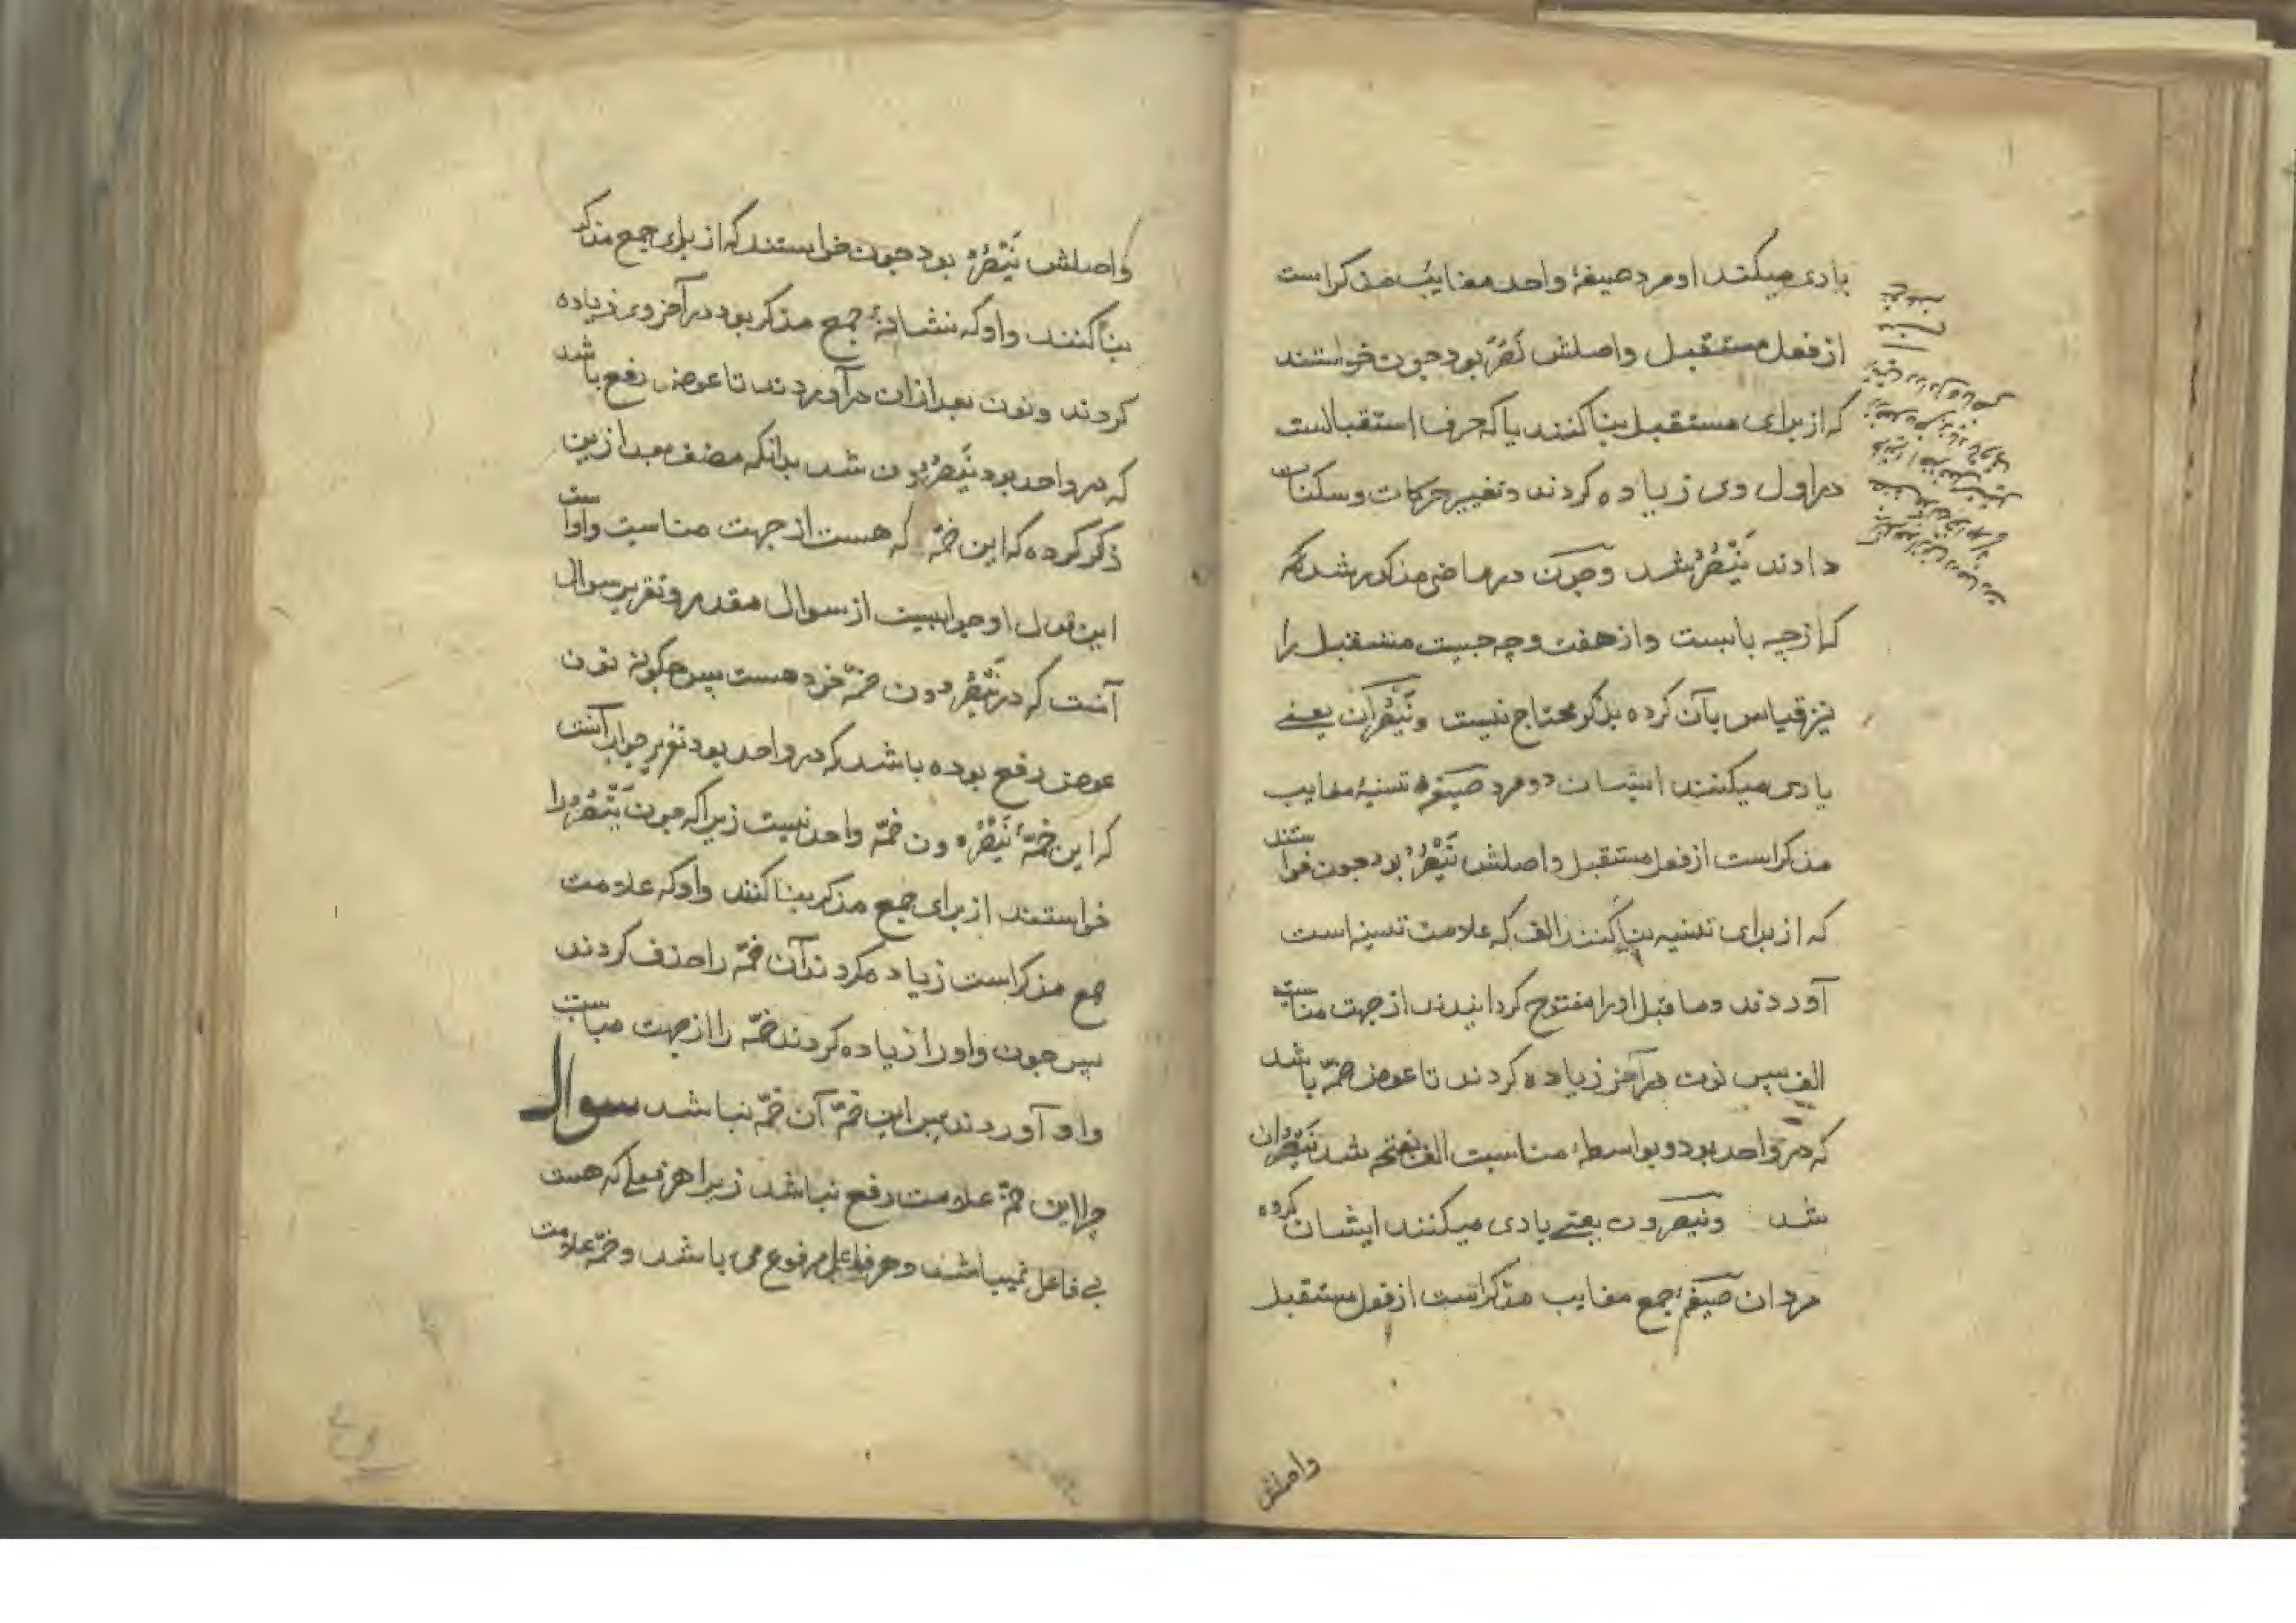 یادی میکند او مرد صیغهٔ واحد مغایب مذکر است
از فعل مستقبل واصلش نَصَرَ بود جون خواستند
که از برای مستقبل بنا کنند یا که حرف استقبالست
در اول وی زیاده کردند و تغییر حرکات و سکنات
دادند یَنْصُرُ شد وجون در ماضی مذکور شد که
که از چه بابست و از هفت وچه جیست مستقبل را
نیز قیاس بآن کرده بذکر محتاج نیست و یَنْصُرَانِ یعنے
یادی میکنند ایشان دو مرد صیغهٔ تسنیهٔ مغایب
مذکر است از فعل مستقبل واصلش یَنْصُرُ بود جون خواستند
که از برای تسنیه بنا کنند الف که علامت تسنیه است
آوردند وما قبل اورا مفتوح کردانیدند از جهت مناسبت
الف سپس نون در آخر زیاده کردند تا عوض ضمّه باشد
که در واحد بود و بواسطهٔ مناسبت الف بفتحه شد یَنْصُرَان
شد ونیصرون یعنے یادی میکنند ایشان کروه
مردان صیغهٔ جمع مغایب مذکر است از فعل مستقبل
واصلش
واصلش یَنْصُرُ بود جون خواستند که از برای جمع مذکر
بنا کنند واو که نشانهٔ جمع مذکر بود در آخر وی زیاده
کردند ونون بعد از ان در آوردند تا عوض رفع باشد
که در واحد بود یَنْصُرُونَ شد بدانکه مصنف بعد ازین
ذکر کرده که این ضمّه که هست از جهت مناسبت واو است
این قول او جوابیست از سوال مقدر وتقریر سوال
آنست که در یَنْصُرُونَ ضمّه خود هست پس جکونه نون
عوض رفع بوده باشد که در واحد بود تقریر جواب آنست
که این ضمّهٔ یَنْصُرُونَ ضمّه واحد نیست زیرا که جون یَنْصُرُ را
خواستند از برای جمع مذکر بنا کنند واو که علامت
جمع مذکر است زیاده کردند آن ضمّه را حذف کردند
سپس جون واو را زیاده کردند ضمّه را از جهت مناسبت
واو آوردند پس این ضمّه آن ضمّه نباشد سوال
چرا این ضمّه علامت رفع نباشد زیرا هر فعلی که هست
بی فاعل نمیباشد وهر فاعلی مرفوع می باشد وضمّه علامت